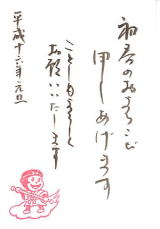 初春のおよろこび
申しあげます
ことしもよろしく
お願いいたします
平成十六年元旦